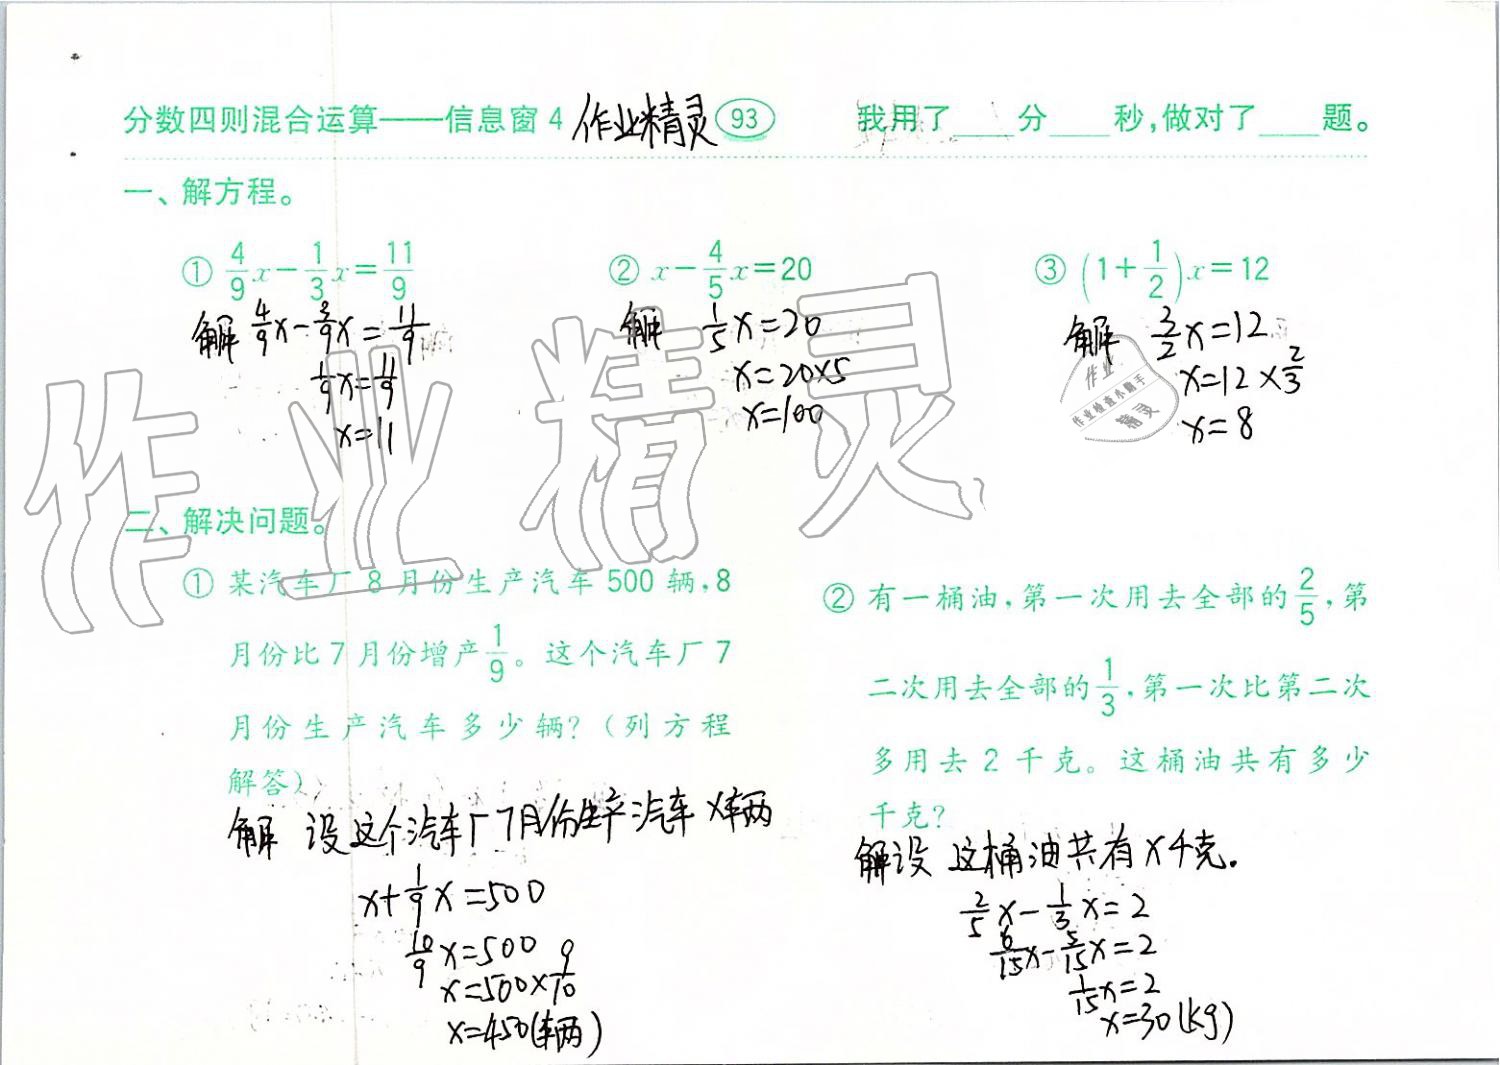 分数四则混合运算——信息窗 4 作业精灵 93 我用了____分____秒,做对了____题。
一、解方程。
① 4/9 x－1/3 x＝11/9 ② x－4/5 x＝20 ③ (1＋1/2)x＝12
解 4/9 x－3/9 x＝11/9 解 1/5 x＝20 解 3/2 x＝12
1/9 x＝11/9 x＝20×5 x＝12×2/3
x＝11 x＝100 x＝8
作业精灵
作业
作业检查小助手
精灵
二、解决问题。
① 某汽车厂 8 月份生产汽车 500 辆,8
月份比 7 月份增产 1/9。这个汽车厂 7
月份生产汽车多少辆?(列方程
解答)
解 设这个汽车厂7月份生产汽车x辆
x＋1/9 x＝500
10/9 x＝500
x＝500×9/10
x＝450(辆)
② 有一桶油,第一次用去全部的 2/5,第
二次用去全部的 1/3,第一次比第二次
多用去 2 千克。这桶油共有多少
千克?
解设 这桶油共有x千克.
2/5 x－1/3 x＝2
6/15 x－5/15 x＝2
1/15 x＝2
x＝30(kg)